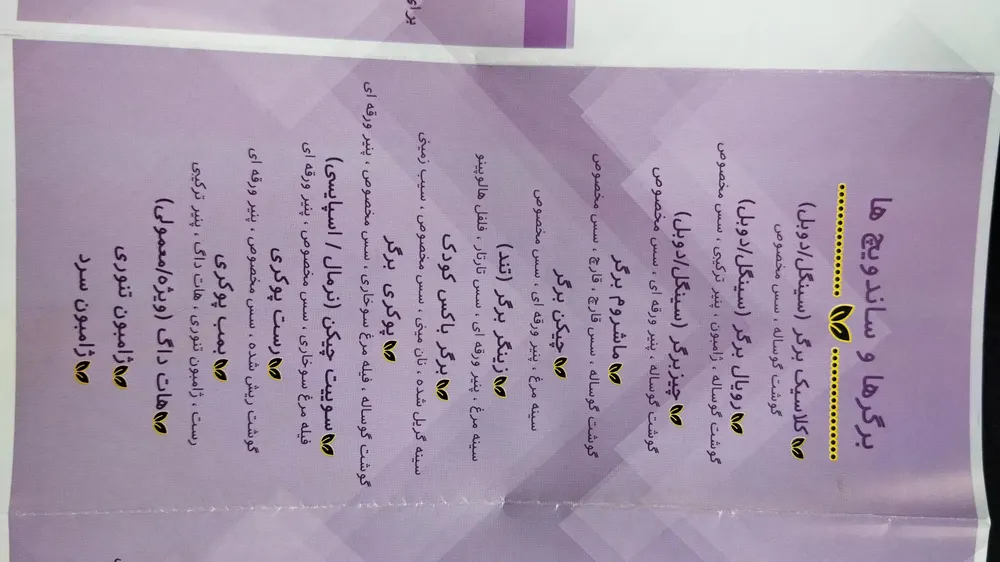 برگرها و ساندویچ ها
کلاسیک برگر (سینگل/دوبل)
گوشت گوساله ، سس مخصوص
رویال برگر (سینگل/دوبل)
گوشت گوساله ، ژامبون ، پنیر ترکیبی ، سس مخصوص
چیزبرگر (سینگل/دوبل)
گوشت گوساله ، پنیر ورقه ای ، سس مخصوص
ماشروم برگر
گوشت گوساله ، سس قارچ ، قارچ ، سس مخصوص
چیکن برگر
سینه مرغ ، پنیر ورقه ای ، سس مخصوص
زینگر برگر (تند)
سینه مرغ ، پنیر ورقه ای ، سس تارتار ، فلفل هالوپینو
برگر باکس کودک
سینه گریل شده ، نان مینی ، سس مخصوص ، سیب زمینی
پوکری برگر
گوشت گوساله ، فیله مرغ سوخاری ، سس مخصوص ، پنیر ورقه ای
سوییت چیکن (نرمال / اسپایسی)
فیله مرغ سوخاری ، سس مخصوص ، پنیر ورقه ای
رست پوکری
گوشت ریش شده ، سس مخصوص ، پنیر ورقه ای
بمب پوکری
رست ، ژامبون تنوری ، هات داگ ، پنیر ترکیبی
هات داگ (ویژه/معمولی)
ژامبون تنوری
ژامبون سرد
برای